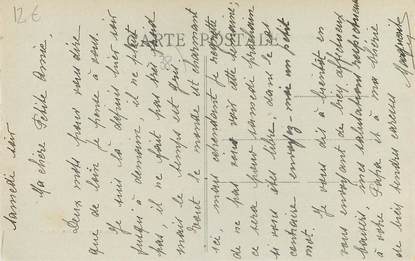 12€
CARTE POSTALE
Samedi soir
Ma chère Petite Amie,
Deux mots pour vous dire
que de loin je pense à vous.
Je suis là depuis hier soir
jusqu'à demain, il ne fait
pas, il ne fait pas très froid
mais le temps est gris
tout le monde est charmant
ici, mais cependant je regrette
de ne pas vous voir cette semaine;
ce sera pour samedi prochain
si vous êtes libre; dans le cas
contraire envoyez-moi un petit
mot.
Je vous dis à bientôt en
vous envoyant de bien affectueux
baisers, mes salutations respectueuses
à votre Papa et à ma chérie
de bien tendres caresses